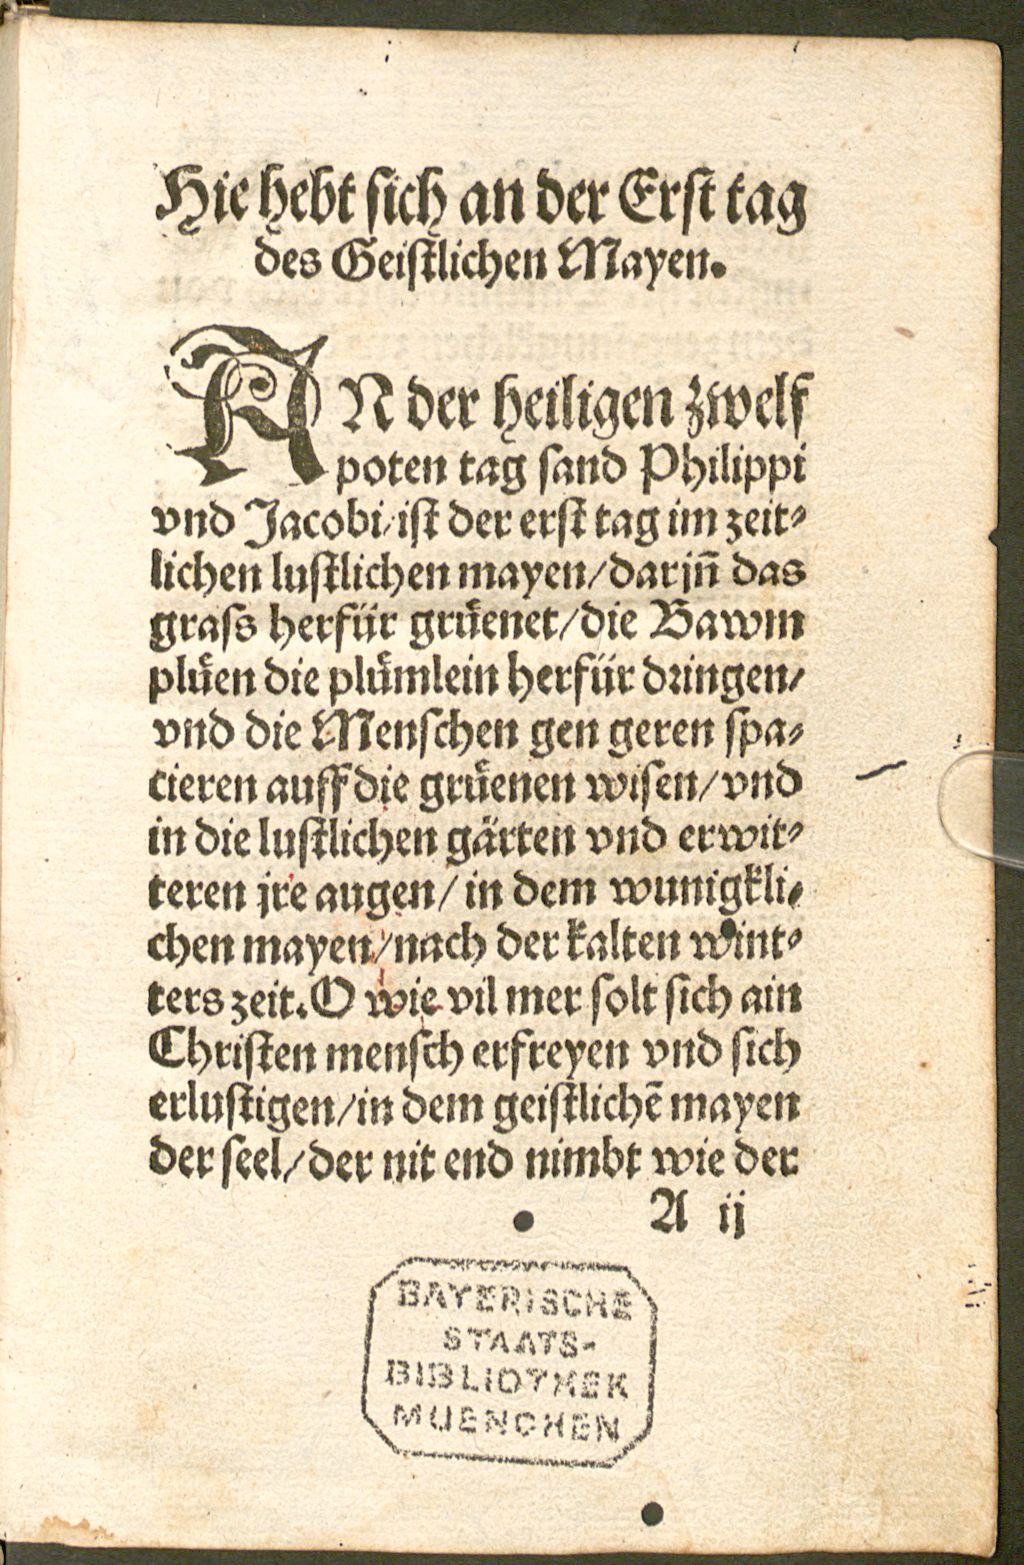 Hie hebt sich an der Erst tag
des Geistlichen Mayen.
AN der heiligen zwelf
poten tag sand Philippi
vnd Jacobi/ist der erst tag im zeit⸗
lichen lustlichen mayen/darjn̄ das
grass herfür grůenet/die Bawm
plůen die plůmlein herfür dringen/
vnd die Menschen gen geren spa⸗
cieren auff die grůenen wisen/vnd
in die lustlichen gärten vnd erwit⸗
teren jre augen/in dem wunigkli⸗
chen mayen/nach der kalten wint⸗
ters zeit.O wie vil mer solt sich ain
Christen mensch erfreyen vnd sich
erlustigen/in dem geistlichē mayen
der seel/der nit end nimbt wie der
A ij
BAYERISCHE
STAATS-
BIBLIOTHEK
MUENCHEN